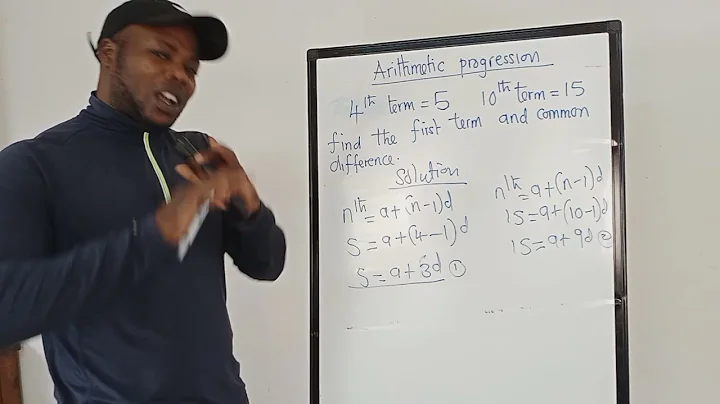 Arithmetic progression
4th term = 5 10th term = 15
find the first term and common
difference.
Solution
nth = a+(n-1)d
5 = a+(4-1)d
5 = a+3d ①
nth = a+(n-1)d
15 = a+(10-1)d
15 = a+9d ②